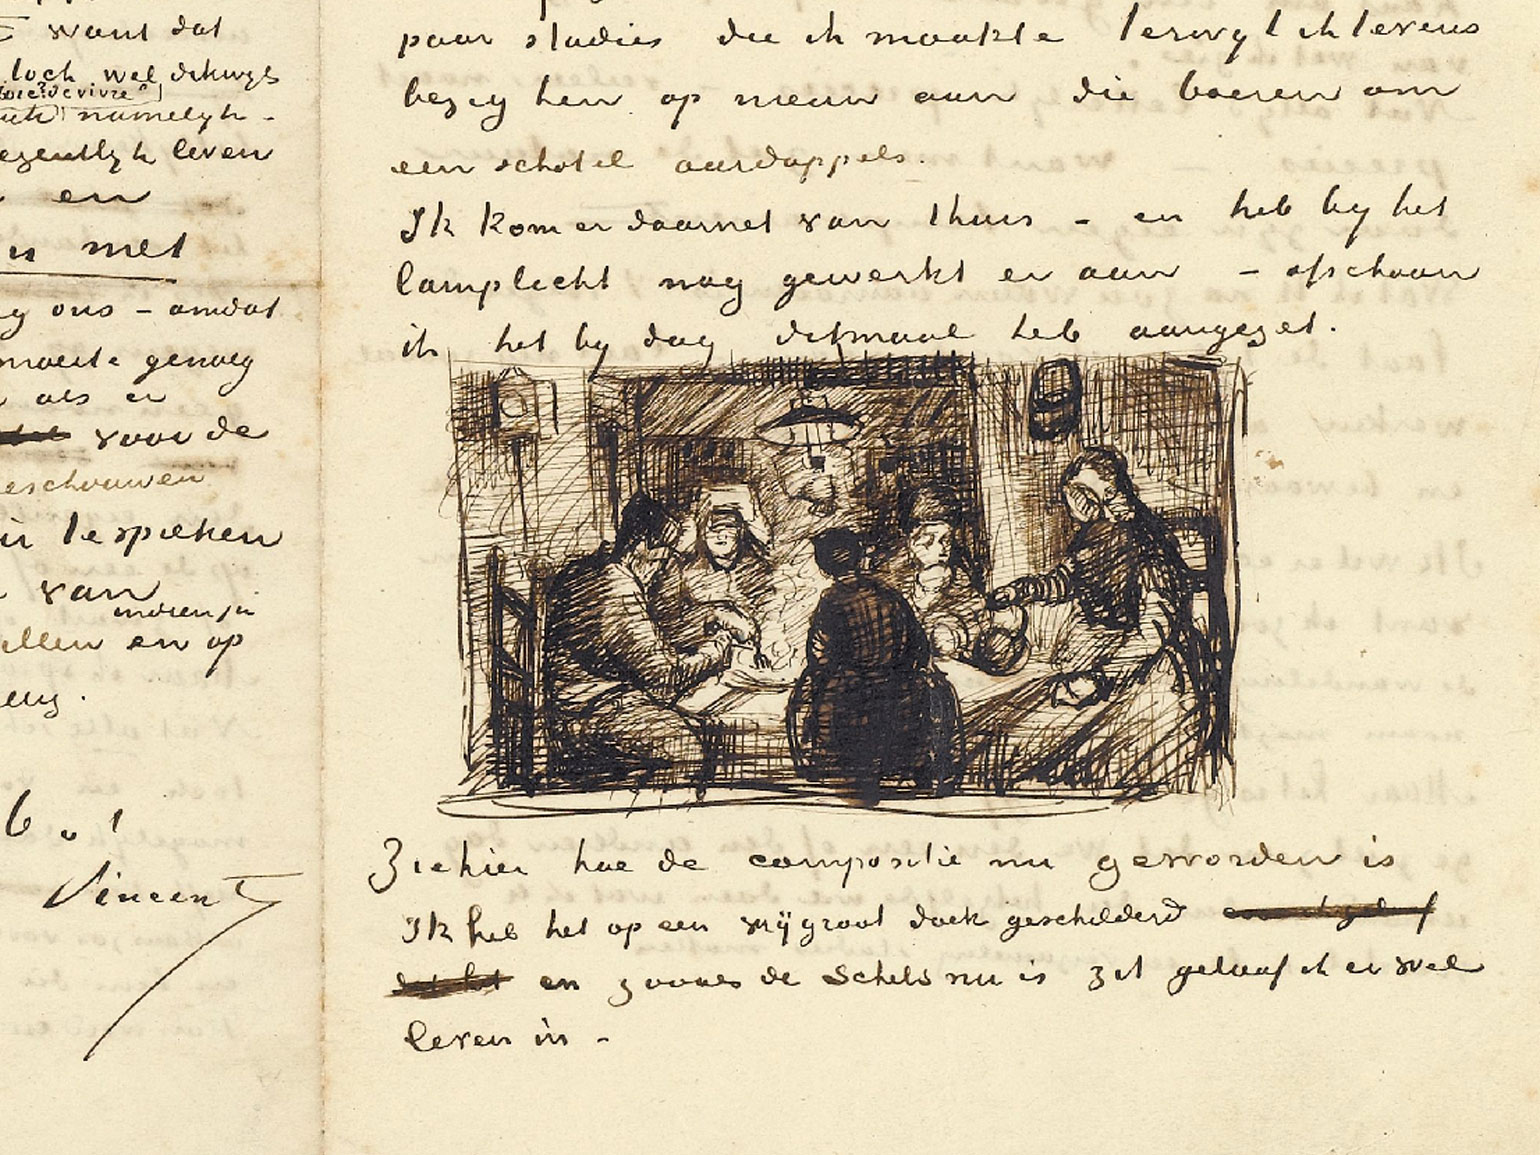 want dat
toch wel dikwijls
joie? de vivre"
namelijk -
eigentlijk leven
en
n met
g ons - omdat
moeite genoeg
als er
voor de
beschouwen
te spreken
van
indien je
vallen en op
b. à t
Vincent
paar studies die ik maakte terwijl ik tevens
bezig ben op nieuw aan die boeren om
een schotel aardappels.
Ik kom er daarnet van thuis - en heb bij het
lamplicht nog gewerkt er aan - ofschoon
ik het bij dag ditmaal heb aangezet.
Ziehier hoe de compositie nu geworden is
Ik heb het op een vrij groot doek geschilderd
en zooals de schets nu is zit geloof ik er wel
leven in -